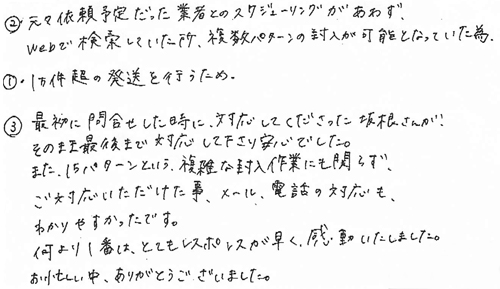 ②・元々依頼予定だった業者とのスケジューリングがあわず、
webで検索していた所、複数パターンの封入が可能となっていた為。
①・1万件超の発送を行うため。
③ 最初に問合せした時に、対応してくださった坂根さんが
そのまま最後まで対応して下さり安心でした。
また、15パターンという、複雑な封入作業にも関らず、
ご対応いただけた事、メール、電話の対応も、
わかりやすかったです。
何より1番は、とてもレスポンスが早く、感動いたしました。
お忙しい中、ありがとうございました。